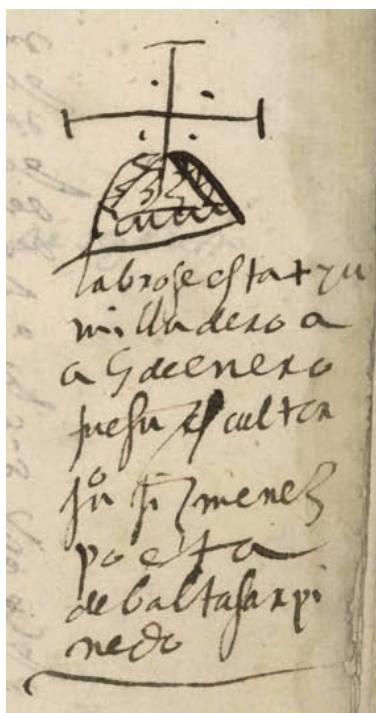 labrose esta + y u
milladero a
a 5 de enero
fue su escultor
juº ximenez
poeta
de baltasar pi
nedo